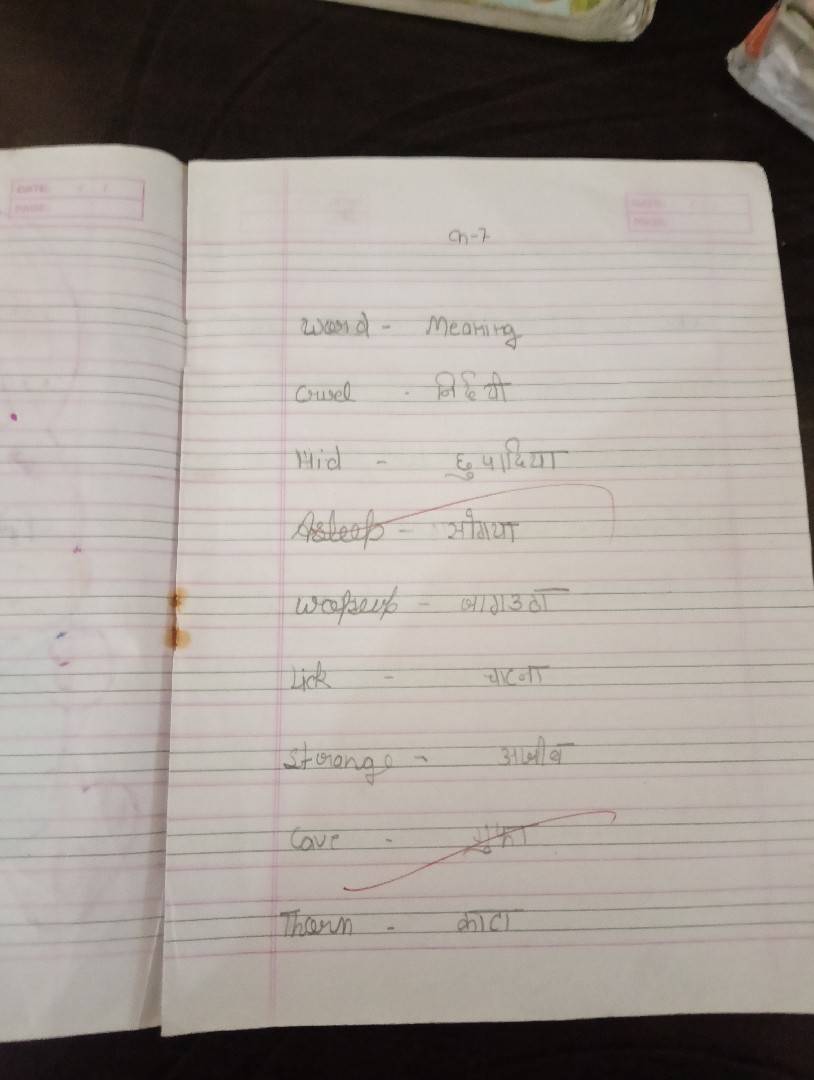 DATE: DATE:
PAGE: PAGE:
Ch-7
Word - Meaning
Cruel - निर्दयी
Hid - छुपादिया
Asleep - सोगया
Wakeup - जागउठा
Lick - चाटना
Strange - अजीब
Cave - गुफा
Thorn - काटा